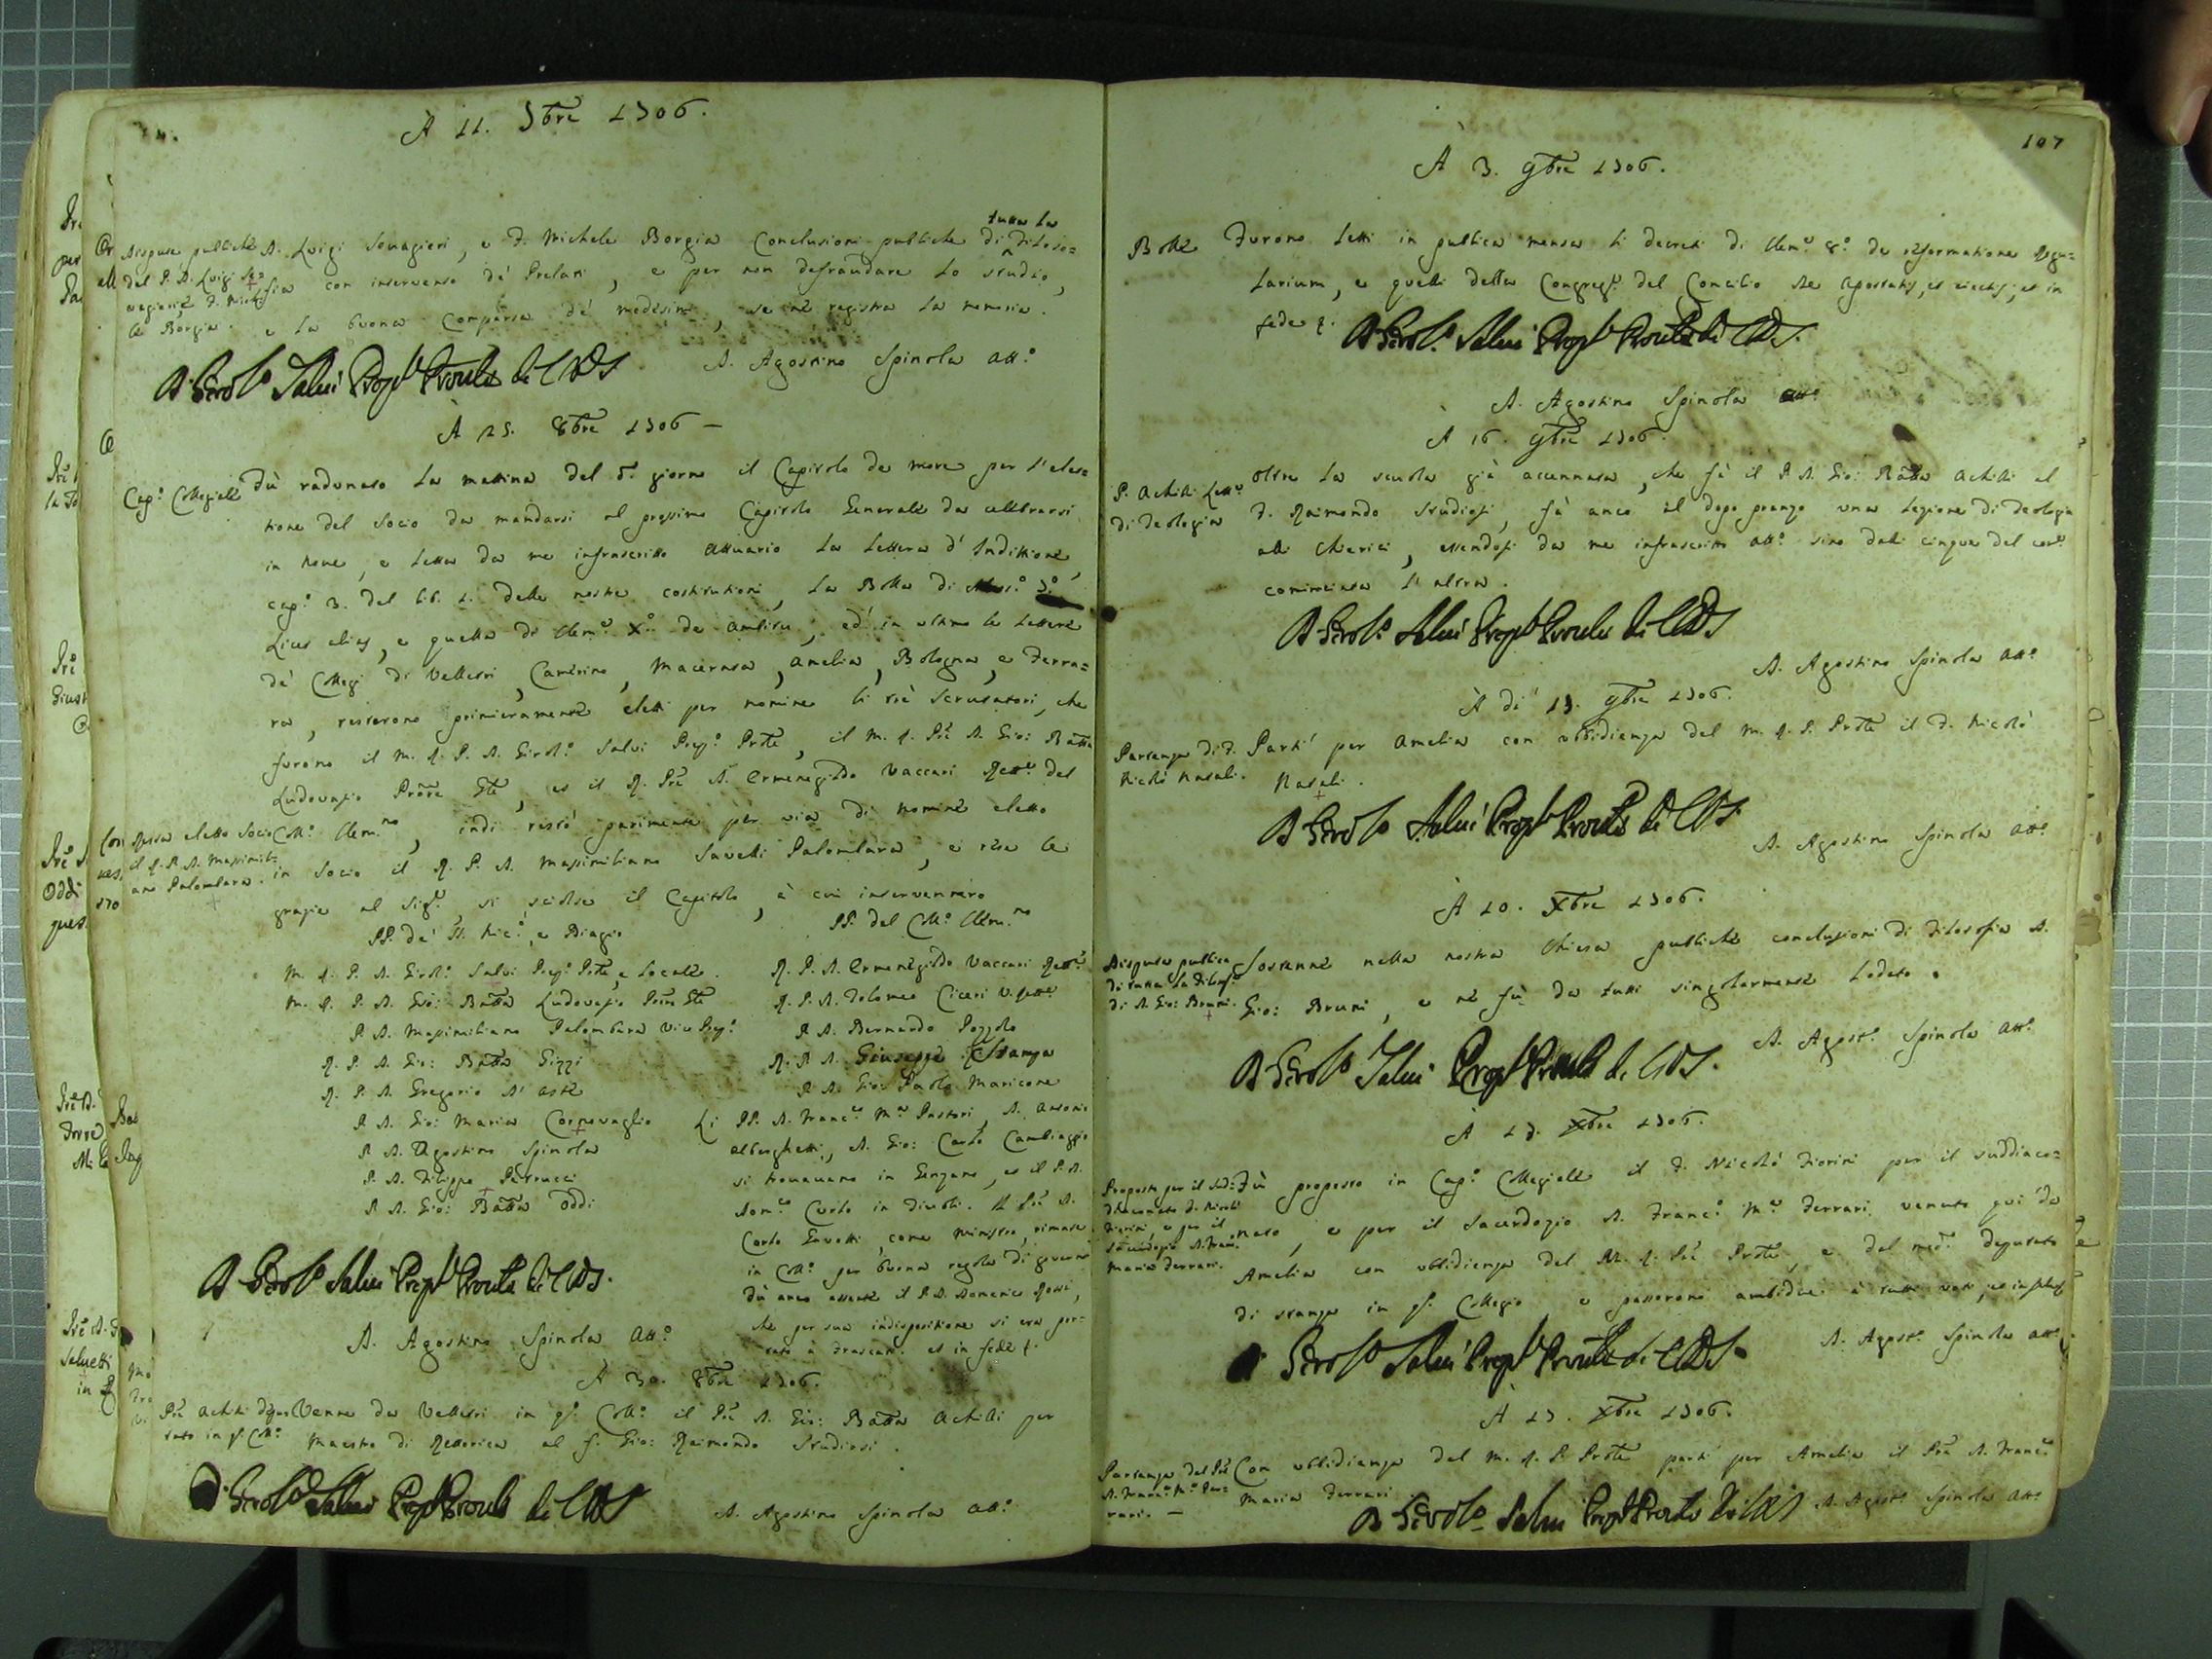 À 11. 7bre 1706.
Dispute publiche
del P. D. Luigi Se=
nagieri, e F. Miche
le Borgia.
D. Luigi Senagieri, e F. Michele Borgia Conclusioni publiche di tutta la Filoso=
fia con intervento de' Prelati, e per non defraudare lo studio,
e la buona Comparsa de' medesimi, se ne registra la memoria.
D. Girol.o Salvi Prep.o Prov.le di C.R.S.
D. Agostino Spinola Att.o
À 25. 8bre 1706 –
Cap.o Collegiale
Fù radunato la mattina del d.o giorno il Capitolo de more per l'elet=
tione del Socio da mandarsi al prossimo Capitolo Generale da celebrarsi
in Roma, e letta da me infrascritto Attuario la Lettera d' Indittione,
cap.o 3. del lib. 1. delle nostre costitutioni, la Bolla di
Licet alias, e quella di Clem.e X.o de ambitu, ed in ultimo le Lettere
de' Collegi di Velletri, Camerino, Macerata, Amelia, Bologna, e Ferra=
ra, restorono primieramente eletti per nomine li trè Scrutatori, che
furono il M. R. P. D. Girol.o Salvi Prep.o Prõle, il M. R. Prẽ D. Gio: Batta
Ludovasio Proõre Gle, et il R. Prẽ D. Ermenegildo Vaccari Rett.e del
Resta eletto Socio
il R. P. D. Massimili=
ano Palombara.
Coll.o Clem.no, indi restò parimente per via di nomine eletto
in Socio il R. P. D. Massimiliano Savelli Palombara, e rese le
grazie al Sig.e, si sciolse il Capitolo, à cui intervennero
PP. de' SS. Nic.o, e Biagio
M. R. P. D. Girol.o Salvi Prep.o Prõle, e Locale.
M. R. P. D. Gio: Batta Ludovasio Proõre Gle
P. D. Massimiliano Palombara Vice Prep.o
R. P. D. Gio: Batta Gizzi
R. P. D. Gregorio D' Aste
P. D. Gio: Maria Cornovaglia
P. D. Agostino Spinola
P. D. Filippo Petrucci
P. D. Gio: Batta Oddi
PP. del Coll.o Clem.no
R. P. D. Ermenegildo Vaccari Rett.e
R. P. D. Tolomeo Ciceri V. Rett.e
P. D. Bernardo Pozzolo
R. P. D. Giuseppe Stampa
P. D. Gio: Paolo Maricone
Li PP. D. Franc.o M.a Pastori, D. Antonio
Alberghetti, D. Gio: Carlo Cambiaggio
si trovavano in Genzano, et il P. D.
Dom.co Curlo in Tivoli. Il Prẽ D.
Carlo Gavotti, come Ministro, rimase
in Coll.o per buona regola di governo
Fù anco assente il P. D. Domenico Rossi,
che per sua indispositione si era por=
tato à Frascati. et in fede &.
D. Girol.o Salvi Prep.o Prov.le di C.R.S.
D. Agostino Spinola Att.o
À 30. 8bre 1706.
Prẽ Achilli depu
tato in q.o Coll.o
Venne da Velletri in q.o Coll.o il Prẽ D. Gio: Batta Achilli per
Maestro di Rettorica al F. Gio: Raimondo Studiosi.
D. Girol.o Salvi Prep.o Prov.le di C.R.S.
D. Agostino Spinola Att.o
107
À 3. 9bre 1706.
Bolle
Furono letti in publica mensa li decreti di Clem.e 8.o de reformatione Regu=
larium, e quelli della Congreg.e del Concilio de Apostatis, et eiectis; et in
fede &.
D. Girol.o Salvi Prep.o Prov.le di C.R.S.
D. Agostino Spinola Att.o
À 16. 9bre 1706.
P. Achilli Lett.e
di Teologia
Oltre la scuola già accennata, che fà il P. D. Gio: Batta Achilli al
F. Raimondo Studiosi, fà anco il dopo pranzo una Lezione di Teologia
alli Chierici, essendosi da me infrascritto Att.o sino dalli cinque del cor.te
cominciata l' altra.
D. Girol.o Salvi Prep.o Prov.le di C.R.S.
D. Agostino Spinola Att.o
À di 19. 9bre 1706.
Partenza di F.
Nicolò Natali.
Partì per Amelia con ubbidienza del M. R. P. Prõle il F. Nicolò
Natali.
D. Girol.o Salvi Prep.o Prov.le di C.R.S.
D. Agostino Spinola Att.o
À 10. Xbre 1706.
Disputa publica
di tutta la Filosf.a
di D. Gio: Bruni.
Sostenne nella nostra Chiesa publiche conclusioni di Filosofia D.
Gio: Bruni, e ne fù da tutti singolarmente lodato.
D. Girol.o Salvi Prep.o Prov.le di C.R.S.
D. Agost.o Spinola Att.o
À 17. Xbre 1706.
Proposta per il Sud=
diaconato F. Nicolò
Fiorini, e per il
Sacerdozio D. Franc.o
Maria Ferrari.
Fù proposto in Cap.o Collegiale il F. Nicolò Fiorini per il suddiaco=
nato, e per il Sacerdozio D. Franc.o M.a Ferrari venuto quì da
Amelia con ubbidienza del M. R. Prẽ Prõle, e dal med.o deputato
di stanza in q.o Collegio, e passorono ambidue à tutti voti, et in fede &
D. Girol.o Salvi Prep.o Prov.le di C.R.S.
D. Agost.o Spinola Att.o
À 19. Xbre 1706.
Partenza del Prẽ
D. Franc.o M.a Fer=
rari. –
Con ubbidienza del M. R. P. Prõle partì per Amelia il Prẽ D. Franc.o
Maria Ferrari
D. Girol.o Salvi Prep.o Prov.le di C.R.S.
D. Agost.o Spinola Att.o